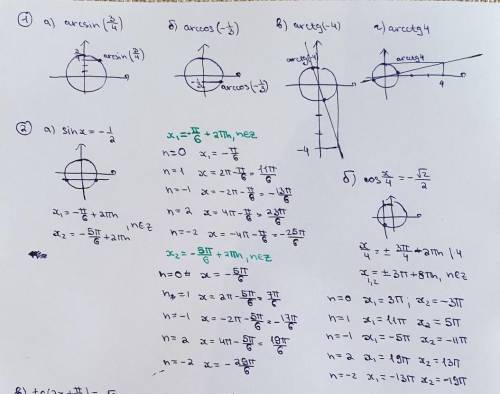 ① а) arcsin(3/4) б) arccos(-1/3) в) arctg(-4) г) arcctg4
3/4 arcsin(3/4)
-1/3 arccos(-1/3)
arctg(-4)
-4
arcctg4
4
② а) sinx = -1/2
x₁ = -π/6 + 2πn
x₂ = -5π/6 + 2πn, n∈z
x₁ = -π/6 + 2πn, n∈z
n=0 x₁ = -π/6
n=1 x = 2π - π/6 = 11π/6
n=-1 x = -2π - π/6 = -13π/6
n=2 x = 4π - π/6 = 23π/6
n=-2 x = -4π - π/6 = -25π/6
x₂ = -5π/6 + 2πn, n∈z
n=0 x = -5π/6
n=1 x = 2π - 5π/6 = 7π/6
n=-1 x = -2π - 5π/6 = -17π/6
n=2 x = 4π - 5π/6 = 19π/6
n=-2 x = -29π/6
б) cos x/4 = -√2/2
x/4 = ± 3π/4 + 2πn | 4
x₁,₂ = ± 3π + 8πn, n∈z
n=0 x₁ = 3π; x₂ = -3π
n=1 x₁ = 11π x₂ = 5π
n=-1 x₁ = -5π x₂ = -11π
n=2 x₁ = 19π x₂ = 13π
n=-2 x₁ = -13π x₂ = -19π